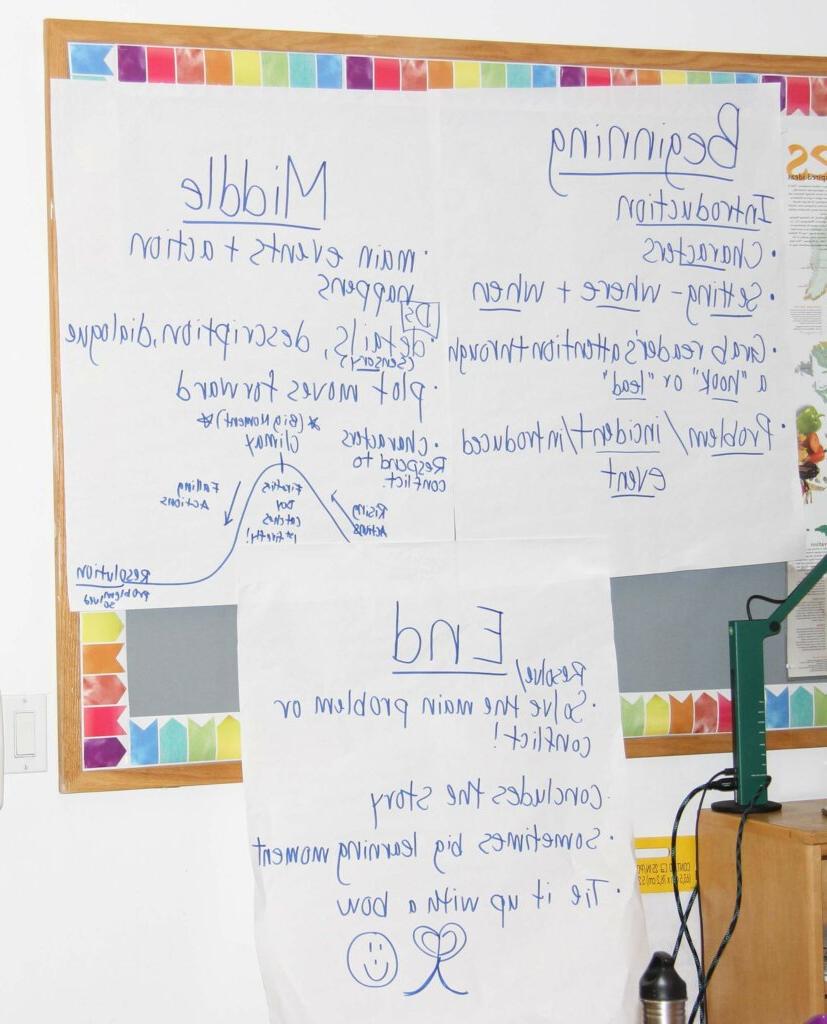 Beginning
Introduction
· Characters
· Setting - where + when
· Grab reader's attention through
a "hook" or "lead"
· Problem/incident/introduced
event
Middle
· main events + action
happens
DS
· details, description, dialogue
(sensory)
· plot moves forward
· Characters
Respond to
conflict
*(Big Moment)*
Climax
Fireflies
Boy
catches
1st firefly!
Rising
Actions
Falling
Actions
Resolution
problem solved
End
Resolve/
· Solve the main problem or
conflict!
· Concludes the story
· Sometimes big learning moment
· Tie it up with a bow